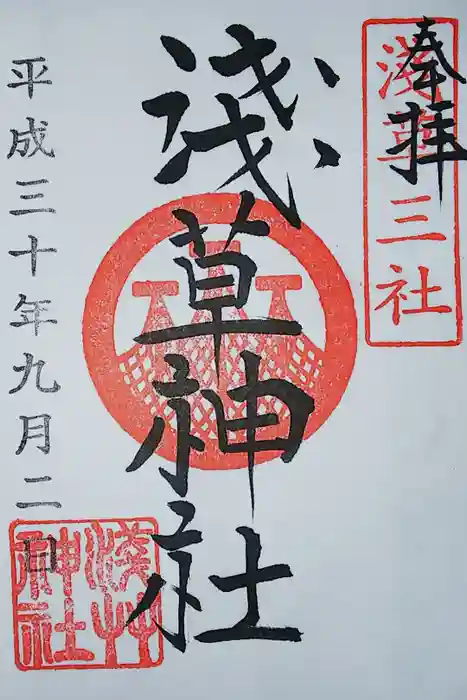 奉拝
淺草三社
淺草神社
平成三十年九月二日
淺艸
神社